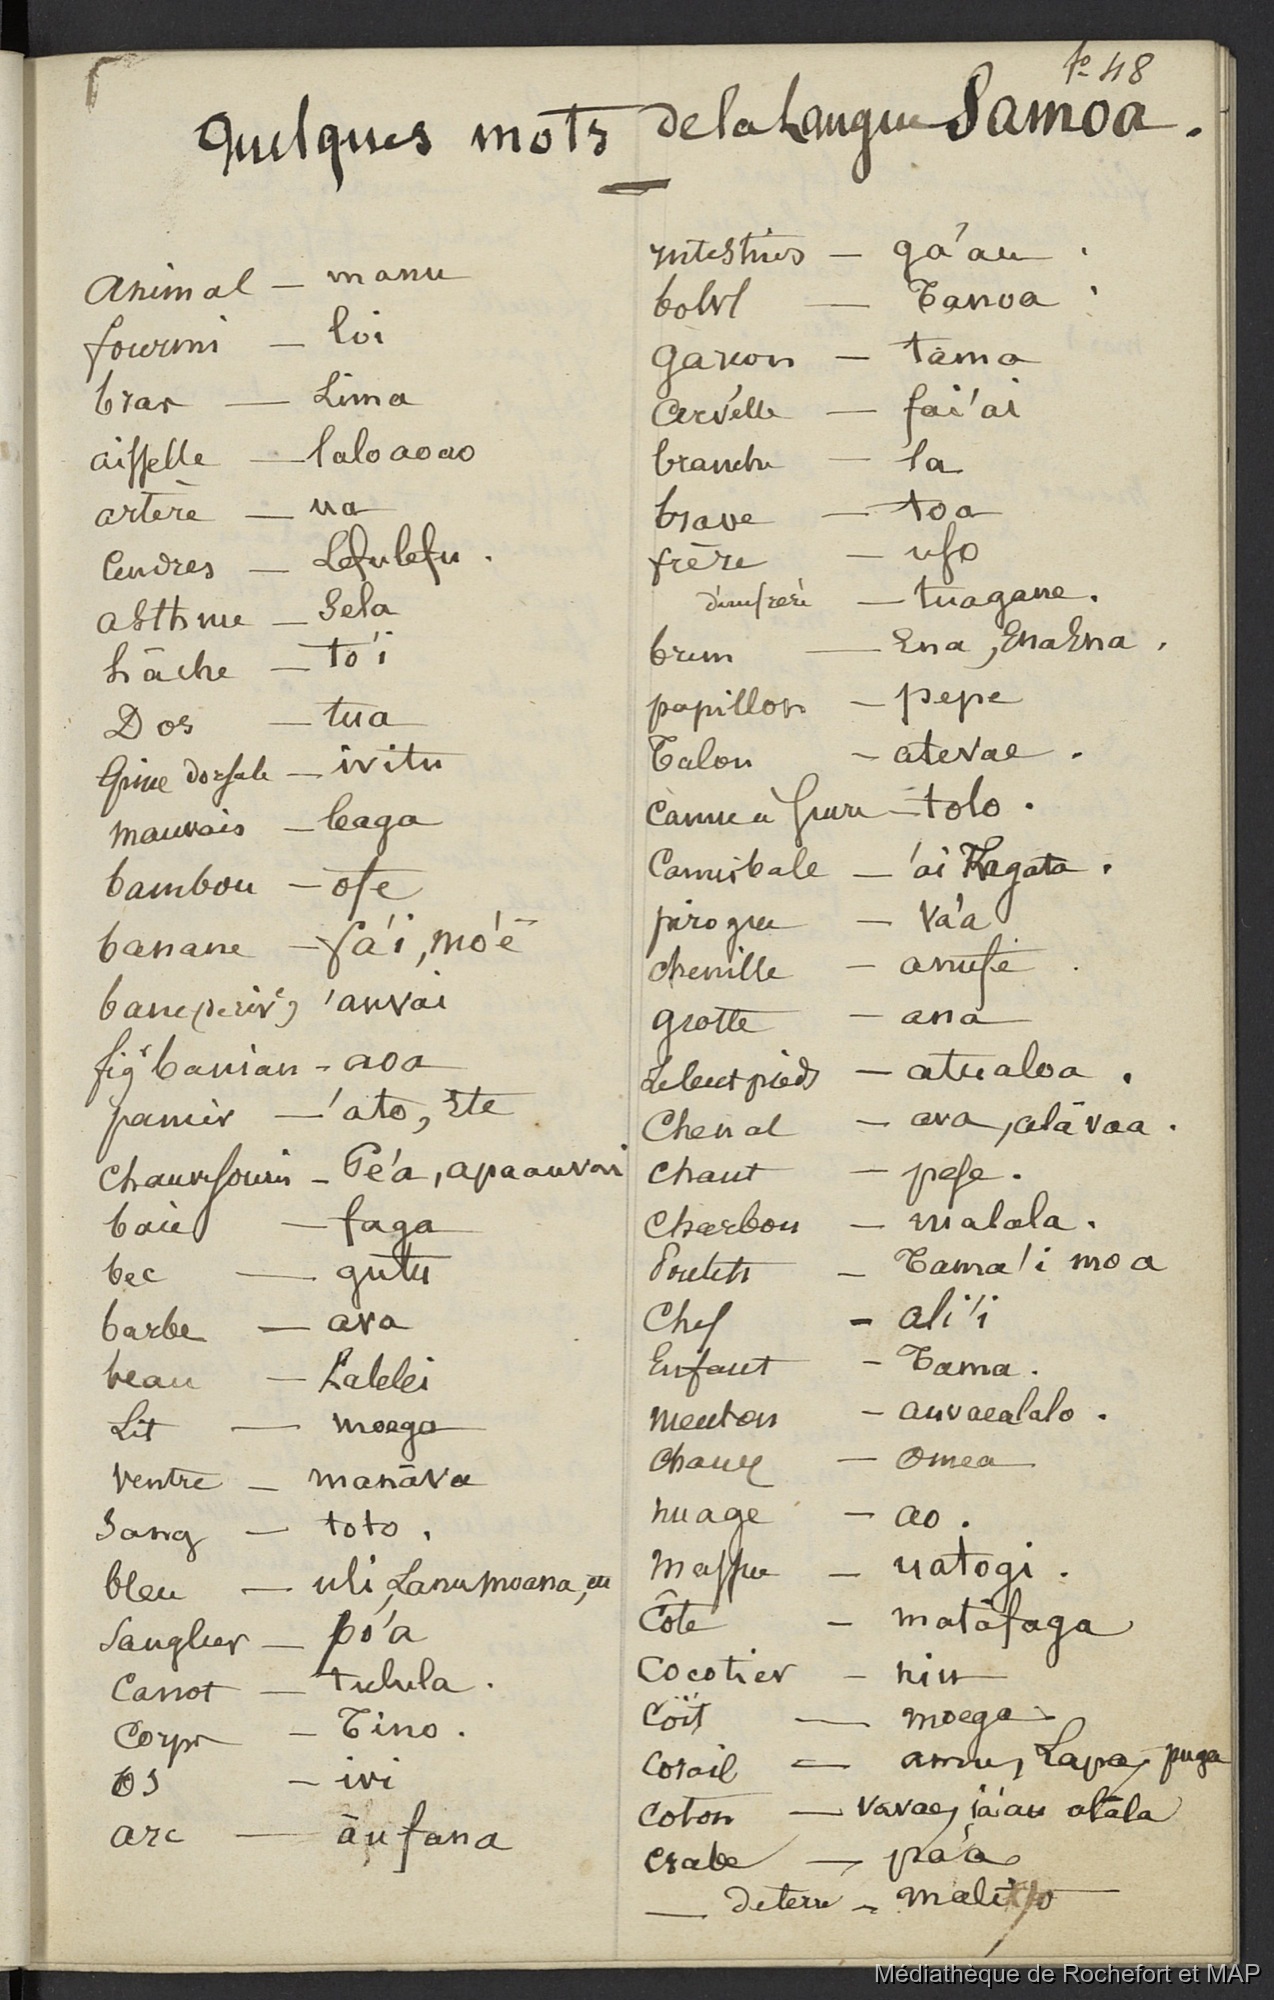 fo 48
Quelques mots de la Langue Samoa.
animal — manu
fourmi — loi
bras — Lima
aisselle — lalo ao ao
artère — ua
Cendres — Lefulefu.
asthme — Sela
hâche — to'i
Dos — tua
Epine dorsale — ivitu
mauvais — leaga
bambou — ofe
banane — fa'i, mo'ē
banc (de riv.) 'auvai
figr banian - aoa
panier — 'ato, Ete
chauve souris - Pe'a, apaauvai
baie — faga
bec — gutu
barbe — ava
beau — Lalelei
Lit — moega
ventre — manāva
Sang — toto.
bleu — uli, Lanumoana,
Sanglier — po'a
Canot — tulula.
Corps — Tino.
os — ivi
arc — āufana
intestins — ga'au
bolvl — Tanoa
garçon — tama
Cervelle — fai'ai
branche — la
brave — toa
frère — uso
d'une freré — tuagane.
brun — Ena, EnaEna.
papillon — pepe
Talon — atevae.
Canne à sucre — tolo.
Cannibale — 'ai Tagata.
pirogue — va'a
chenille — anufe
grotte — ana
— atualoa.
Chenal — ava, alāvaa.
chant — pese.
charbon — malala.
Poulets — Tama'i moa
Chef — ali'i
Enfant — Tama.
menton — auvaealalo.
chaux — omea
nuage — ao.
massue — uatogi.
Côte — matāfaga
Cocotier — niu
Coït — moega
Corail — amu, Lapa, puga
Coton — vavae, la'au alāla
crabe — pa'a
— de terre -
Médiathèque de Rochefort et MAP